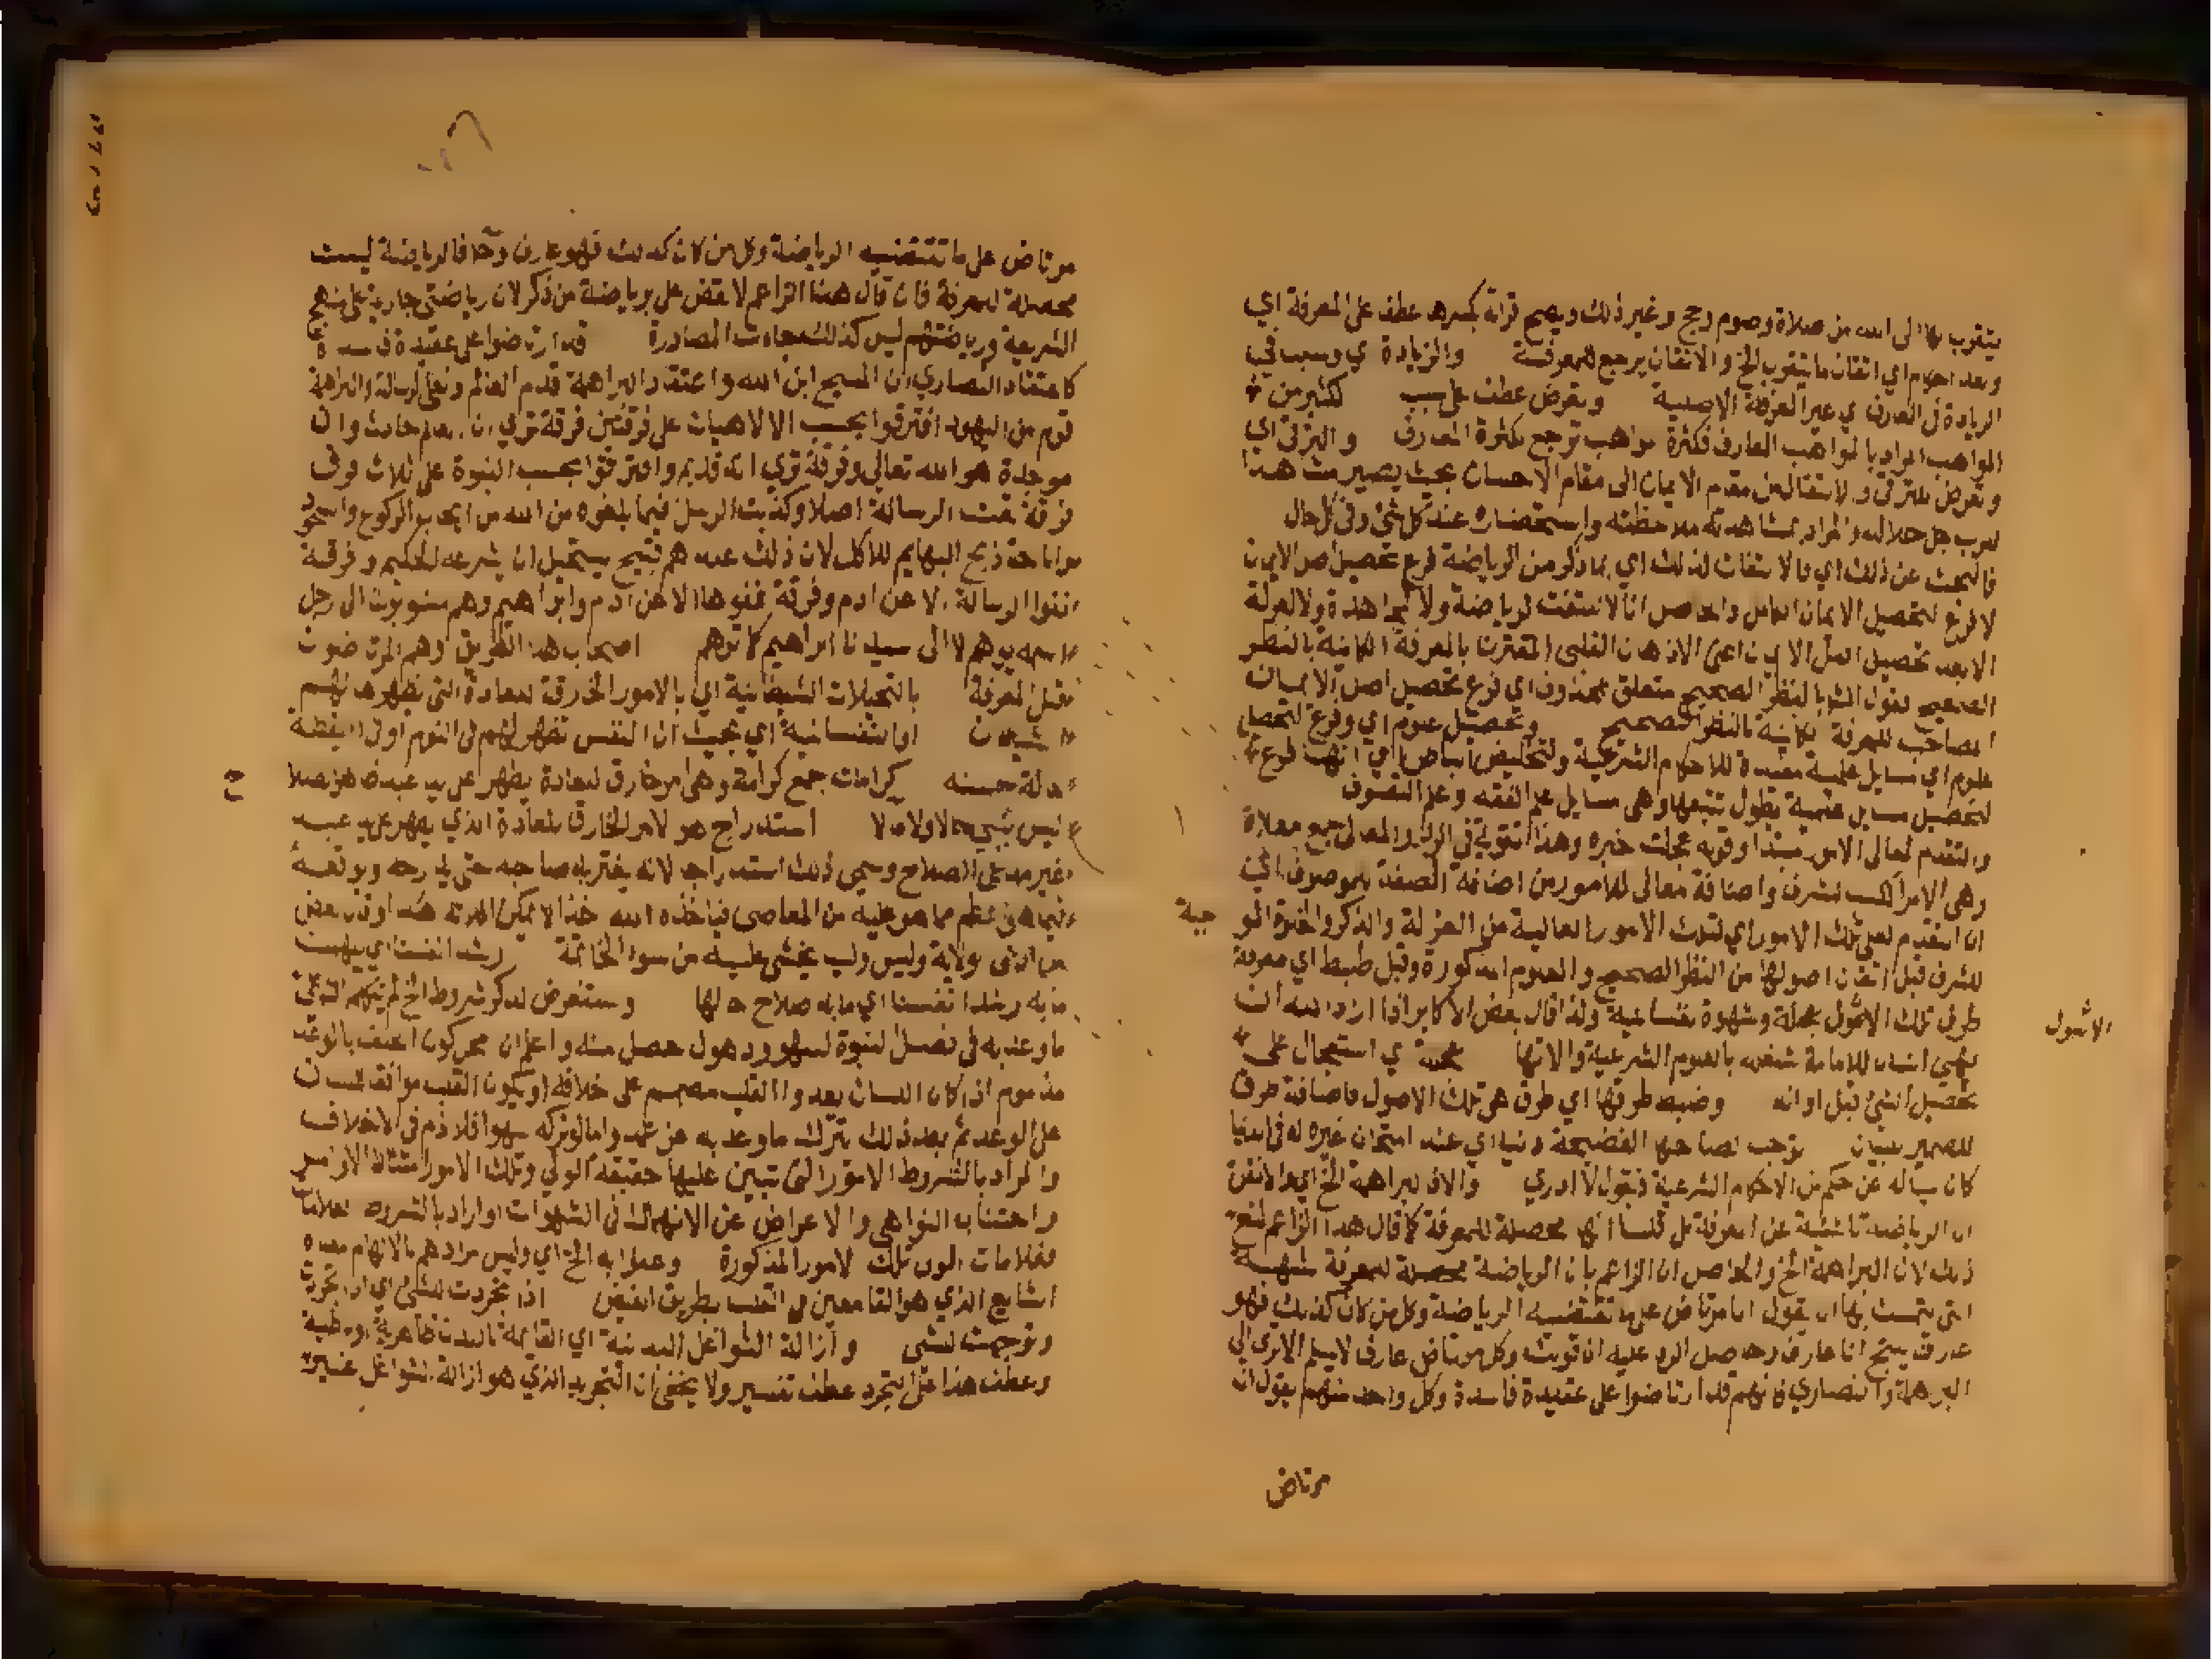 يتقرب بها الى الله من صلاة وصوم وحج وغير ذلك ويصح قراته بكسرها عطف على المعرفة اي
وبعد احكام اي اتقان ما يتقرب الخ والاتقان يرجع للمعرفة والزيادة اي وسبب في
الزيادة في المعارف اي غير المعرفة الاصلية وتعرض عطف على سبب لكثير من
المواهب المراد بالمواهب المعارف فكثرة مواهب ترجع لكثرة المعارف والترقي اي
وتعرض للترقي والانتقال من مقام الايمان الى مقام الاحسان بحيث يصير مشاهدا
للرب جل جلاله والمراد بمشاهدته ملاحظته واستحضاره عند كل شئ وفي كل حال
فالبحث عن ذلك اي فالالتفات لذلك اي بما ذكر من الرياضة فرع تحصيل اصل الايمان
لا فرع لتحصيل الايمان الكامل والحاصل انا لا نلتفت لرياضة ولا لمجاهدة ولا لعزلة
الا بعد تحصيل اصل الايمان اعني الاذعان القلبي المقترن بالمعرفة الكاينة بالنظر
الصحيح فقول الش بالنظر الصحيح متعلق بمحذوف اي فرع تحصيل اصل الايمان
المصاحب للمعرفة الكاينة بالنظر الصحيح وتحصيل علوم اي وفرع لتحصيل
علوم اي مسايل علمية مفيدة للاحكام الشرعية
لتحصيل مسايل علمية يطول تتبعها وهي مسايل علم الفقه وعلم التصوف
والتقدم لمعالي الامور مبتدا وقوله عجلت خبره وهذا والمعالي جمع معلاة
وهي الامر المكسب للشرف واضافة معالي للامور من اضافة الصفة للموصوف اي
ان التقدم لعلى تلك الامور اي لتلك الامور العالية من العزلة والذكر والخلوة الموجبة
للشرف قبل اتقان اصولها من النظر الصحيح والعلوم المذكورة وقبل ضبط اي معرفة
طرق تلك الاصول عجلة وشهوة نفسانية ولذا قال بعض الاكابر اذا اراد الله ان
يهيئ انسان للامامة شغله بالعلوم الشرعية والاتها عجلة اي استعجال على
تحصيل الشئ قبل اوانه وضبط طرقها اي طرق هي تلك الاصول فاضافة طرق
للضمير للبيان توجب لصاحبها الفضيحة دنيا اي عند امتحان غيره له في الدنيا
كان يساله عن حكم من الاحكام الشرعية فيقول لا ادري والا فالبراهمة الخ اي والا نقل
ان الرياضة ناشئة عن المعرفة بل قلنا انها محصلة للمعرفة كما قال هذا الزاعم لمنع
ذلك لان البراهمة الخ والحاصل ان الزاعم بان الرياضة محصلة للمعرفة شبهته
التي يتمسك بها ان يقول انا مرتاض على ما تقتضيه الرياضة وكل من كان كذلك فهو
عارف ينتج انا عارف وحاصل الرد عليه ان قولك وكل مرتاض عارف لا يسلم الا ترى الى
البراهمة والنصاري فانهم قد ارتاضوا على عقيدة فاسدة وكل واحد منهم يقول انا
مرتاض
الاصول
مرتاض على ما تقتضيه الرياضة وكل من كان كذلك فهو عارف وح فالرياضة ليست
محصلة للمعرفة فان قال هذا الزاعم لا نقض علي برياضة من ذكر لان رياضتي جارية على منهج
الشريعة ورياضتهم ليس كذلك فجات المصادرة قد ارتاضوا على عقيدة فاسدة
كاعتقاد النصاري ان المسيح ابن الله واعتقاد البراهمة قدم العالم ونفي الرسالة والبراهمة
قوم من اليهود افترقوا بحسب الالاهيات على فرقتين فرقة تري ان العالم حادث وان
موجده هو الله تعالى وفرقة تري انه قديم وافترقوا بحسب النبوة على ثلاث فرق
فرقة نفت الرسالة اصلا وكذبت الرسل فيما بلغوه من الله من ايجاب الركوع والسجود
واباحة ذبح البهايم للاكل لان ذلك عندهم قبيح يستحيل ان يشرعه الحكيم وفرقة
نفوا الرسالة الا عن ادم وفرقة نفوها الا عن ادم وابراهيم وهم منسوبون الى رجل
اسمه برهم لا الى سيدنا ابراهيم كما توهم اصحاب هذا الطريق اي وهم المرتاضون
قبل المعرفة بالتخيلات الشيطانية اي بالامور الخارقة للعادة التي يظهرها لهم
الشيطان او النفسانية اي بحيث ان النفس تظهر لهم في النوم او في اليقظة
حالة حسنة كرامات جمع كرامة وهي امر خارق للعادة يظهر على يد عبد ظاهر الصلاح
ليس بنبي حالا ولا مالا استدراج هو الامر الخارق للعادة الذي يظهر على يد عبد
غير مدعي الصلاح وسمي ذلك استدراجا لانه يغتر به صاحبه حتى يدرجه ويوقعه
فيما هو اعظم مما هو عليه من المعاصي فياخذه الله اخذا لا يمكن افلاته هذا وقد قال بعض
من ادعى الولاية وليس ولي يخشى عليه من سوء الخاتمة رشد انفسنا اي يلهمنا
ما به رشد انفسنا اي ما به صلاح حالها وسنعرض لذكر شروط الخ لم يتكلم الش على
ما وعد به في فصل النبوة لسهو وذهول حصل منه واعلم ان محل كون الخلف بالوعد
مذموم اذا كان اللسان يعد والقلب مصمم على خلافه او يكون القلب موافقا للسان
على الوعد ثم بعد ذلك يترك ما وعد به عن عمد واما لو تركه سهوا فلا ذم في الاخلاف
والمراد بالشروط الامور التي تتبين عليها حقيقة الولي وتلك الامور امتثال الاوامر
واجتناب النواهي والاعراض عن الانهماك في الشهوات او اراد بالشروط العلامات
فعلامات الولي تلك الامور المذكورة وعملوا به الخ اي وليس مرادهم بالالهام معناه
الشايع الذي هو القا معين في القلب بطريق الفيض اذا تجردت للشئ اي اذا تجردت
وتوجهت للشئ وازالة الشواغل البدنية اي القايمة بالبدن ظاهرية او باطنية
وعطف هذا على التجرد عطف تفسير ولا يخفى ان التجريد الذي هو ازالة الشواغل غير